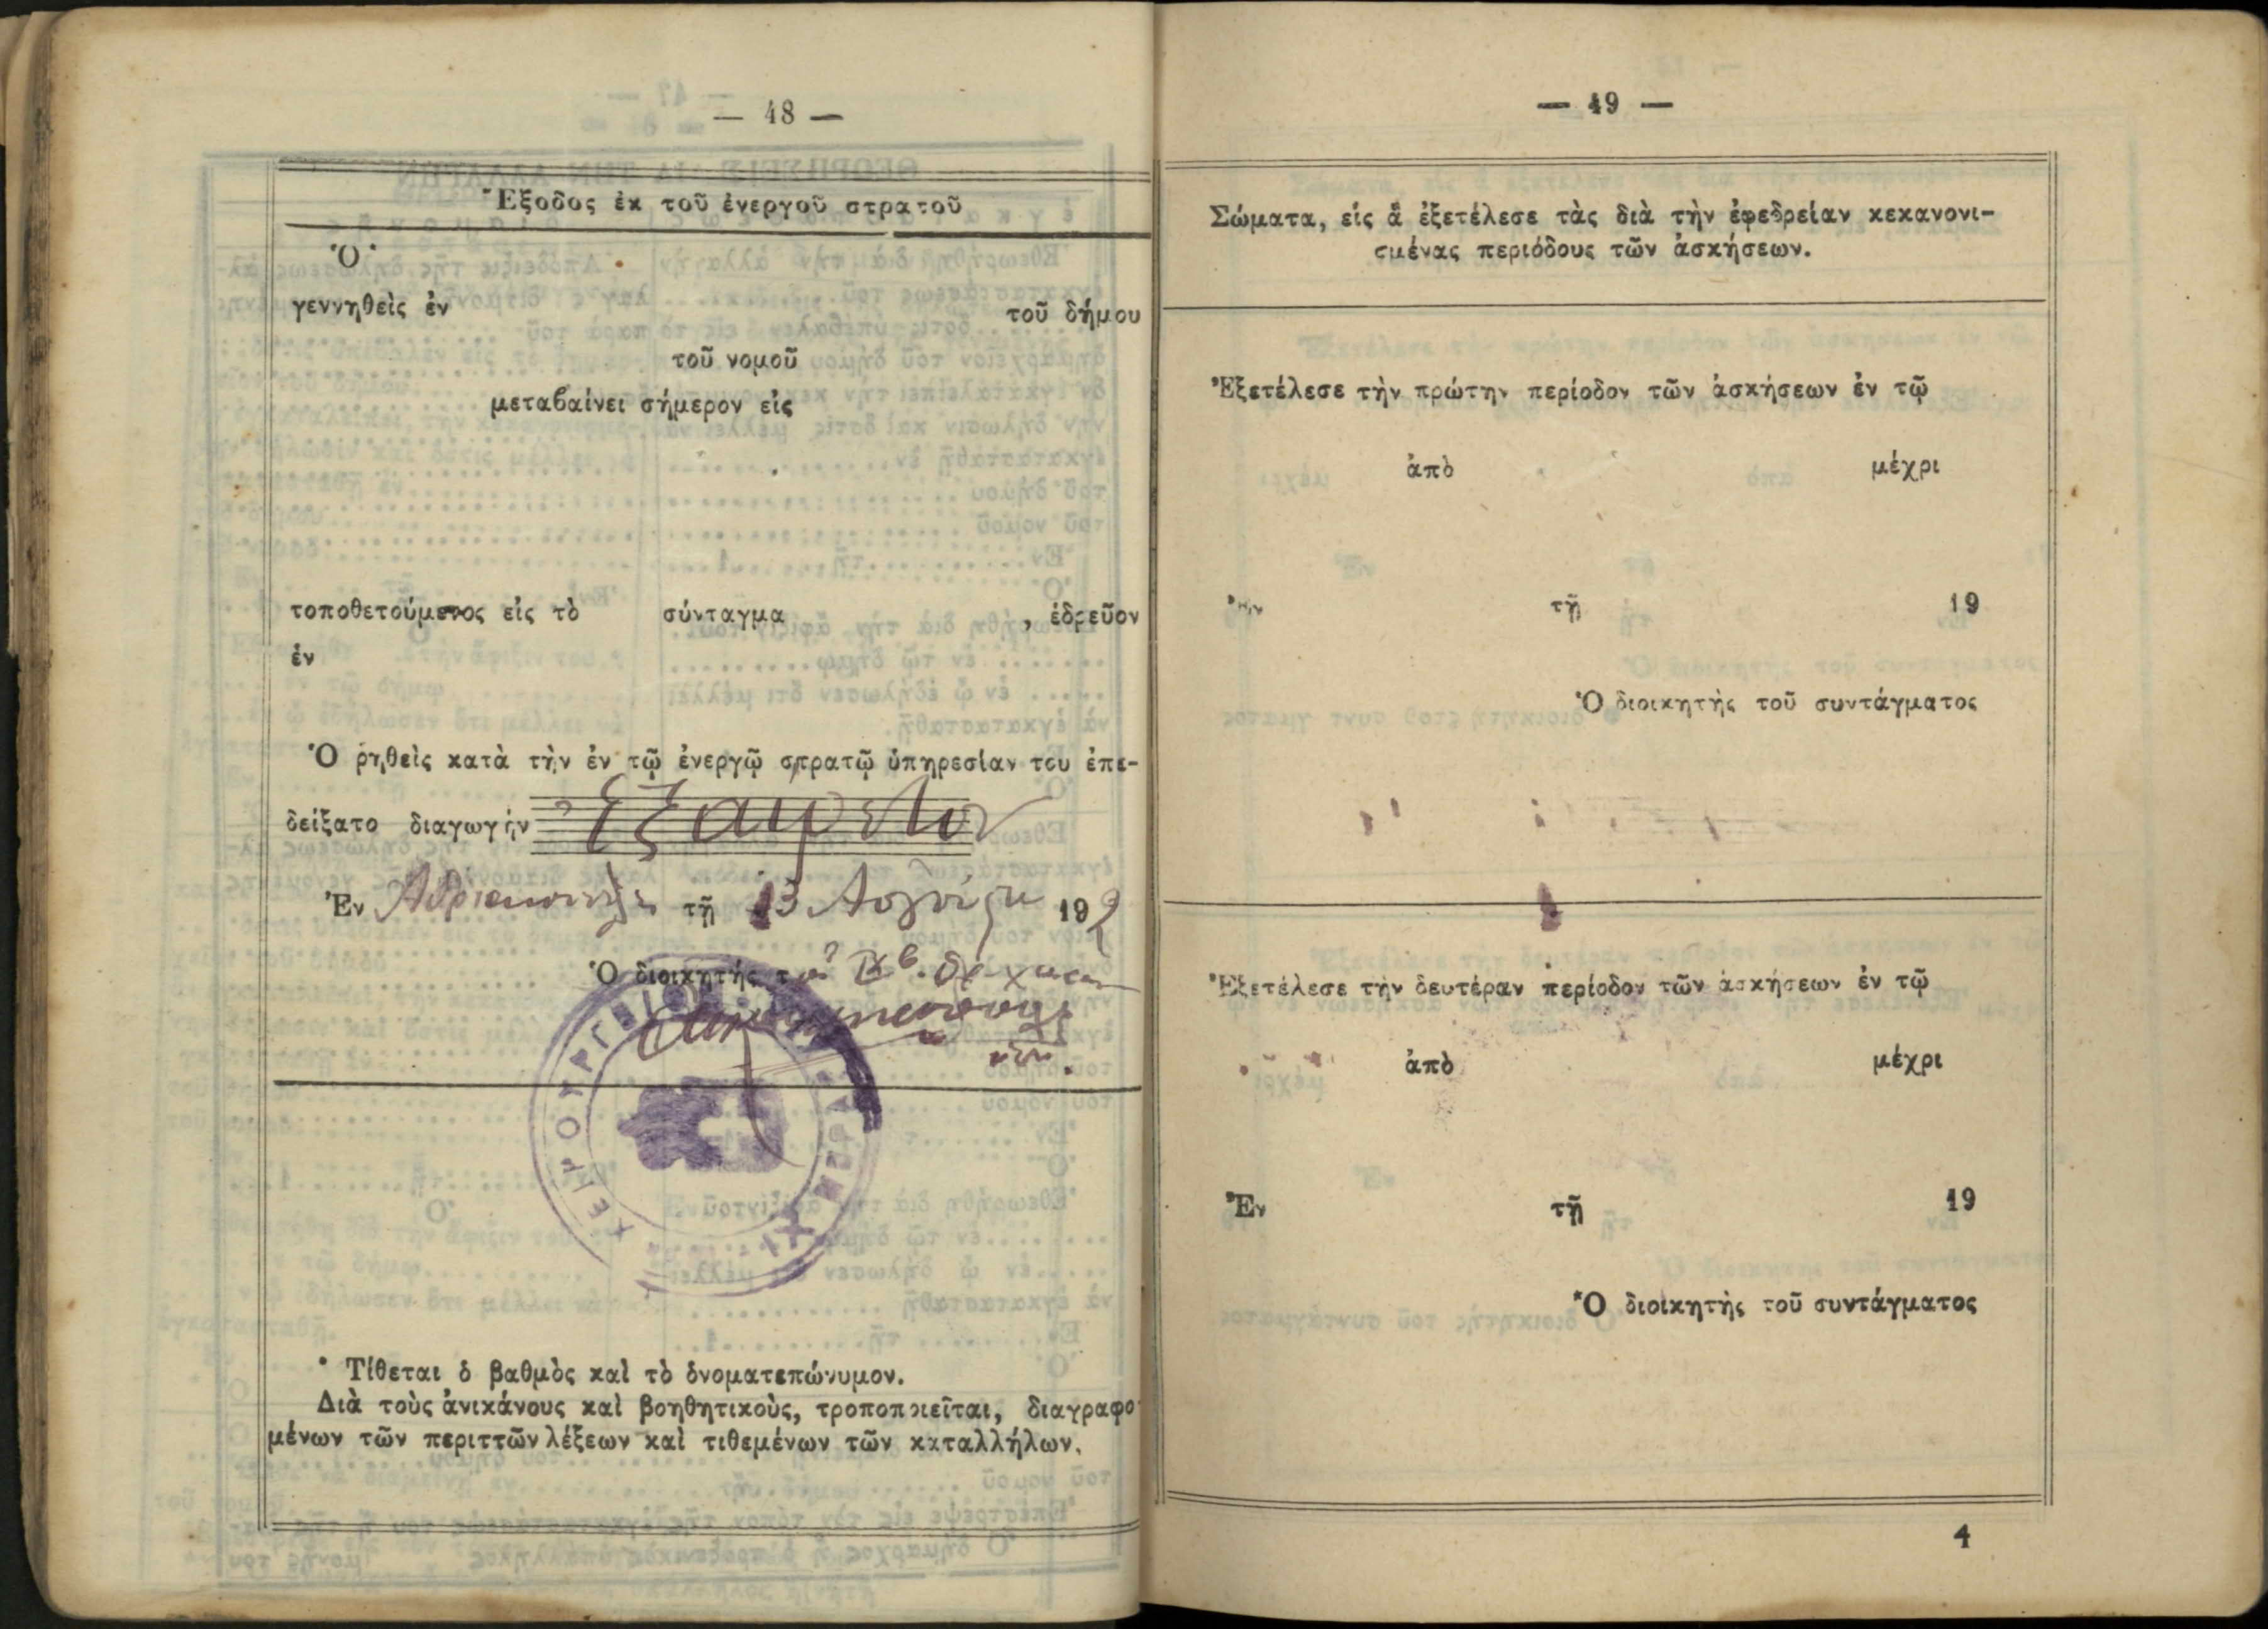 — 48 —
Ἔξοδος ἐκ τοῦ ἐνεργοῦ στρατοῦ
Ὁ*
γεννηθεὶς ἐν τοῦ δήμου
τοῦ νομοῦ
μεταβαίνει σήμερον εἰς
τοποθετούμενος εἰς τὸ σύνταγμα , ἑδρεῦον
ἐν
Ὁ ῥηθεὶς κατὰ τὴν ἐν τῷ ἐνεργῷ στρατῷ ὑπηρεσίαν του ἐπε-
δείξατο διαγωγὴν ἐξαίρετον
Ἐν τῇ 13 Αὐγούστου 192
Ὁ διοικητὴς τοῦ
ΧΕΙΡΟΥΡΓΕΙΟΝ
* Τίθεται ὁ βαθμὸς καὶ τὸ ὀνοματεπώνυμον.
Διὰ τοὺς ἀνικάνους καὶ βοηθητικοὺς, τροποποιεῖται, διαγραφο
μένων τῶν περιττῶν λέξεων καὶ τιθεμένων τῶν καταλλήλων.
— 49 —
Σώματα, εἰς ἃ ἐξετέλεσε τὰς διὰ τὴν ἐφεδρείαν κεκανονι-
σμένας περιόδους τῶν ἀσκήσεων.
Ἐξετέλεσε τὴν πρώτην περίοδον τῶν ἀσκήσεων ἐν τῷ
ἀπὸ μέχρι
Ἐν τῇ 19
Ὁ διοικητὴς τοῦ συντάγματος
Ἐξετέλεσε τὴν δευτέραν περίοδον τῶν ἀσκήσεων ἐν τῷ
ἀπὸ μέχρι
Ἐν τῇ 19
Ὁ διοικητὴς τοῦ συντάγματος
4